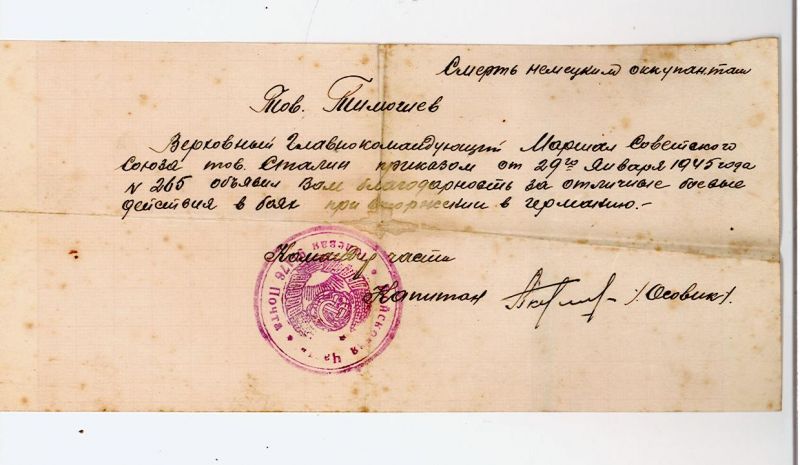 Смерть немецким оккупантам
Тов. Тимошев
Верховный Главнокомандующий Маршал Советского
Союза тов. Сталин приказом от 29го Января 1945 года
N 265 объявил Вам благодарность за отличные боевые
действия в боях при вторжении в германию.-
Командир части
Капитан /Осовик/.
Войсковая Часть Полевая Почта